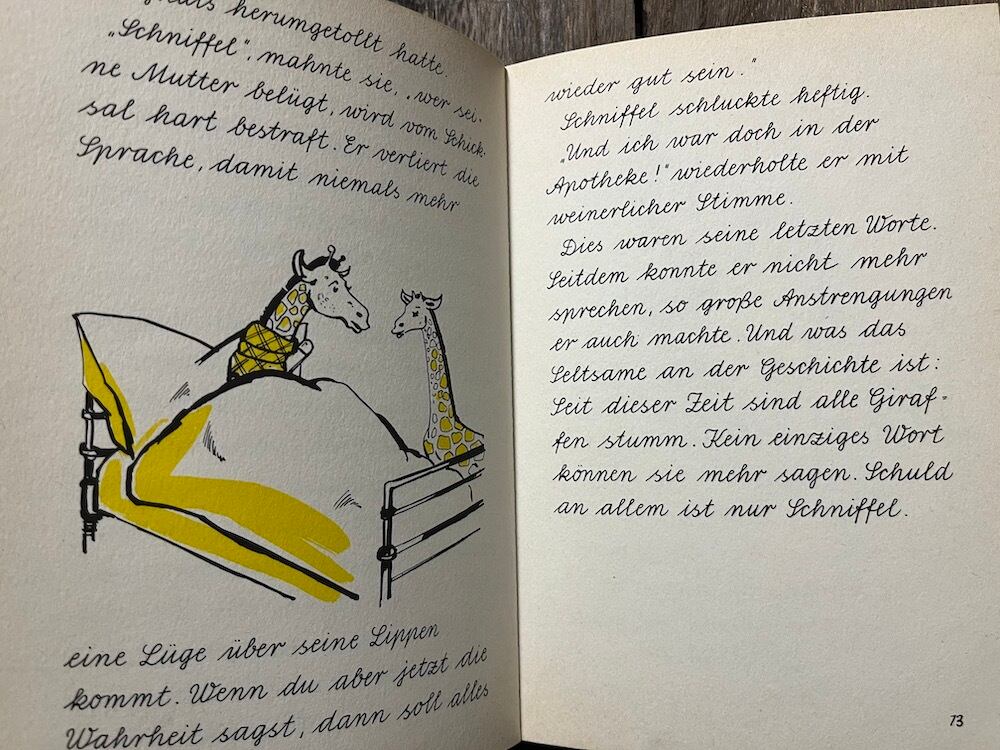 herumgetollt hatte.
„Schniffel", mahnte sie, „wer sei-
ne Mutter belügt, wird vom Schick-
sal hart bestraft. Er verliert die
Sprache, damit niemals mehr
eine Lüge über seine Lippen
kommt. Wenn du aber jetzt die
Wahrheit sagst, dann soll alles
wieder gut sein."
Schniffel schluckte heftig.
„Und ich war doch in der
Apotheke!" wiederholte er mit
weinerlicher Stimme.
Dies waren seine letzten Worte.
Seitdem konnte er nicht mehr
sprechen, so große Anstrengungen
er auch machte. Und was das
Seltsame an der Geschichte ist:
Seit dieser Zeit sind alle Giraf-
fen stumm. Kein einziges Wort
können sie mehr sagen. Schuld
an allem ist nur Schniffel.
73